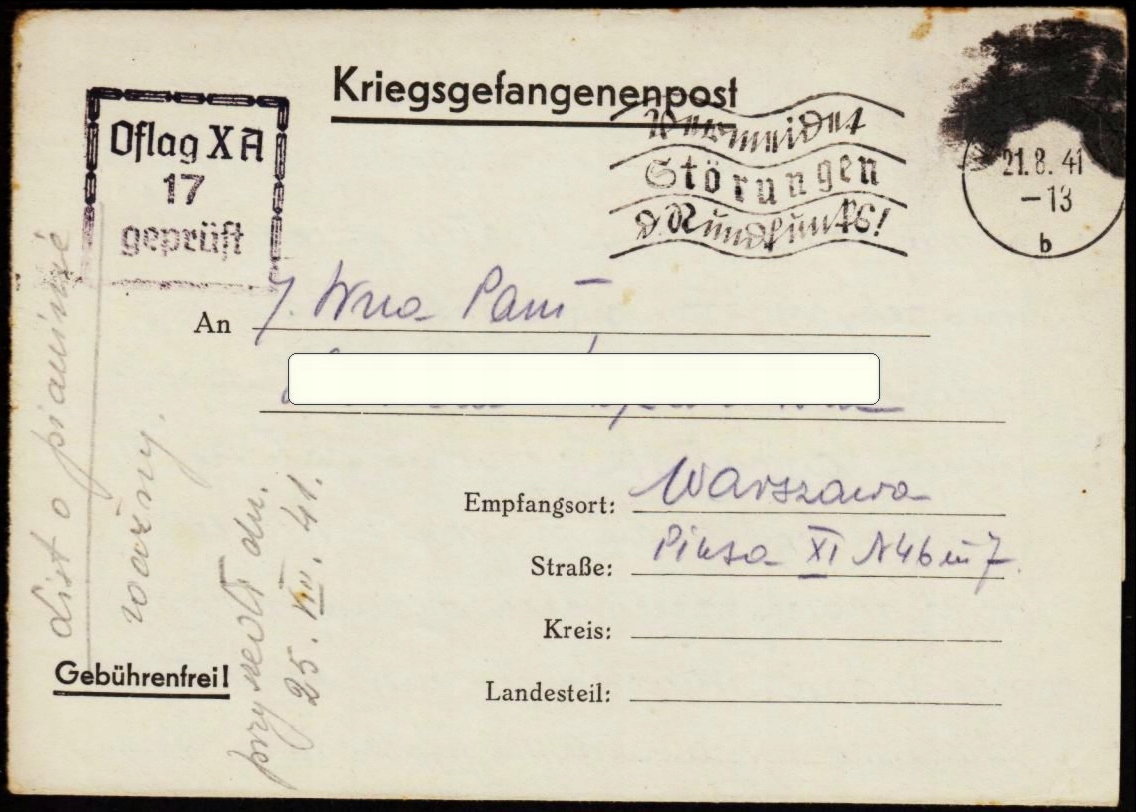 Kriegsgefangenenpost
Oflag X A
17
geprüft
Vermeidet
Störungen
d. Rundfunks!
21.8.41
-13
b
An J. Wna Pani
Empfangsort: Warszawa
Straße: Piusa XI N 46 m 7.
Kreis:
Landesteil:
Gebührenfrei!
List o pianinie
ważny.
przyszedł dn.
25. VIII. 41.